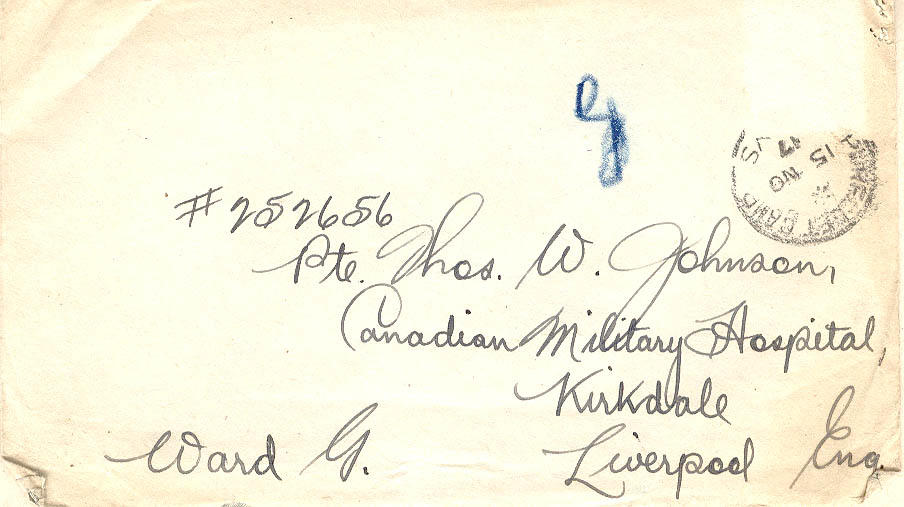 #252656
Pte. Thos. W. Johnson,
Canadian Military Hospital,
Kirkdale
Ward G. Liverpool Eng.
15 NO
17